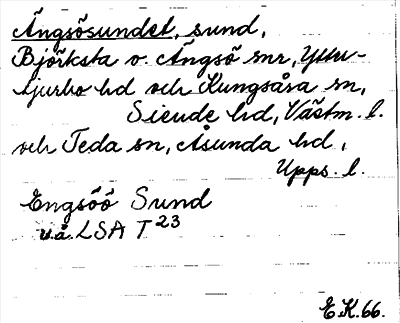 Ängsösundet, sund,
Björksta o. Ängsö snr, Yttter-
tjurbo hd och Kungsåra sn,
Siende hd, Västm. l.
och Teda sn, Åsunda hd,
Upps. l.
Engsöö Sund
u.å. LSA T 23
E.K. 66.